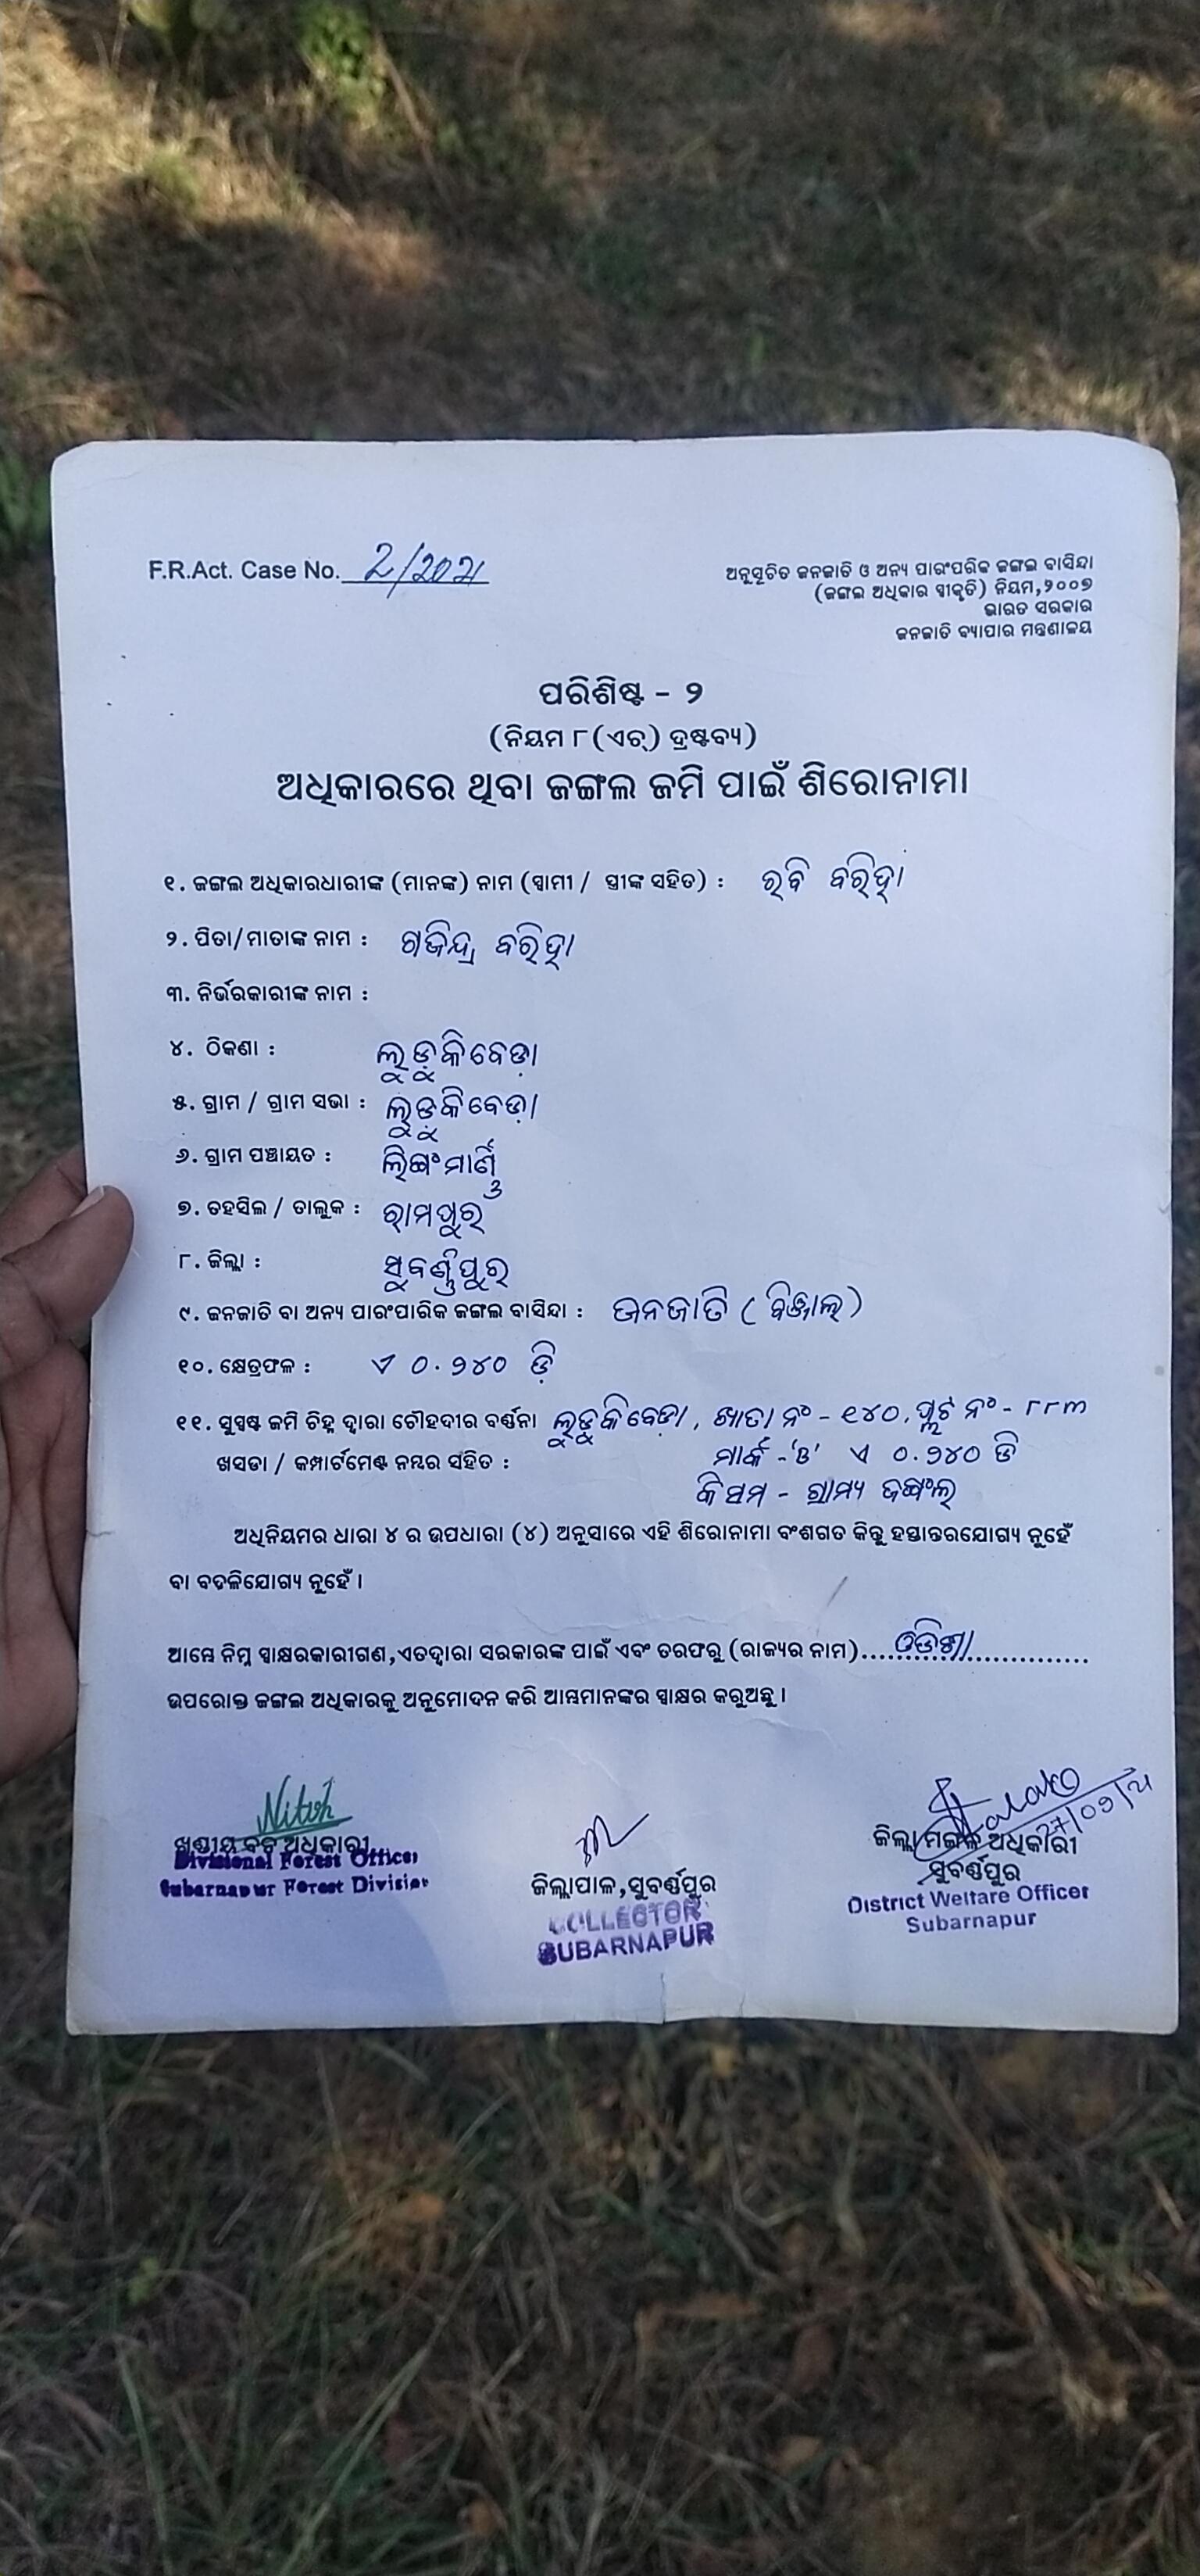 F.R.Act. Case No. 2/2021
ଅନୁସୂଚିତ ଜନଜାତି ଓ ଅନ୍ୟ ପାରଂପରିକ ଜଙ୍ଗଲ ବାସିନ୍ଦା
(ଜଙ୍ଗଲ ଅଧିକାର ସ୍ୱୀକୃତି) ନିୟମ,୨୦୦୭
ଭାରତ ସରକାର
ଜନଜାତି ବ୍ୟାପାର ମନ୍ତ୍ରଣାଳୟ
ପରିଶିଷ୍ଟ - ୨
(ନିୟମ ୮(ଏଚ୍) ଦ୍ରଷ୍ଟବ୍ୟ)
ଅଧିକାରରେ ଥିବା ଜଙ୍ଗଲ ଜମି ପାଇଁ ଶିରୋନାମା
୧. ଜଙ୍ଗଲ ଅଧିକାରଧାରୀଙ୍କ (ମାନଙ୍କ) ନାମ (ସ୍ୱାମୀ / ସ୍ତ୍ରୀଙ୍କ ସହିତ) : ରବି ବରିହା
୨. ପିତା/ମାତାଙ୍କ ନାମ : ଗଜିନ୍ଦ୍ର ବରିହା
୩. ନିର୍ଭରକାରୀଙ୍କ ନାମ :
୪. ଠିକଣା : ଲୁଡୁକିବେଡ଼ା
୫. ଗ୍ରାମ / ଗ୍ରାମ ସଭା : ଲୁଡୁକିବେଡ଼ା
୬. ଗ୍ରାମ ପଞ୍ଚାୟତ : ଲିଙ୍ଗମାର୍ଣ୍ଣି
୭. ତହସିଲ / ତାଲୁକ : ରାମପୁର
୮. ଜିଲ୍ଲା : ସୁବର୍ଣ୍ଣପୁର
୯. ଜନଜାତି ବା ଅନ୍ୟ ପାରଂପାରିକ ଜଙ୍ଗଲ ବାସିନ୍ଦା : ଜନଜାତି ( ବିଞ୍ଝାଲ)
୧୦. କ୍ଷେତ୍ରଫଳ : ଏ ୦.୨୪୦ ଡ଼ି
୧୧. ସୁସ୍ପଷ୍ଟ ଜମି ଚିହ୍ନ ଦ୍ୱାରା ଚୌହଦୀର ବର୍ଣ୍ଣନା ଲୁଡୁକିବେଡ଼ା, ଖାତା ନଂ - ୧୪୦, ପ୍ଲଟ ନଂ - ୮୮୩
ଖସଡା / କମ୍ପାର୍ଟମେଣ୍ଟ ନମ୍ବର ସହିତ : ମାର୍କ - 'B' ଏ ୦.୨୪୦ ଡି
କିସମ - ଗ୍ରାମ୍ୟ ଜଙ୍ଗଲ
ଅଧିନିୟମର ଧାରା ୪ ର ଉପଧାରା (୪) ଅନୁସାରେ ଏହି ଶିରୋନାମା ବଂଶଗତ କିନ୍ତୁ ହସ୍ତାନ୍ତରଯୋଗ୍ୟ ନୁହେଁ
ବା ବଦଳିଯୋଗ୍ୟ ନୁହେଁ ।
ଆମ୍ଭେ ନିମ୍ନ ସ୍ୱାକ୍ଷରକାରୀଗଣ,ଏତଦ୍ୱାରା ସରକାରଙ୍କ ପାଇଁ ଏବଂ ତରଫରୁ (ରାଜ୍ୟର ନାମ)....ଓଡିଶା....
ଉପରୋକ୍ତ ଜଙ୍ଗଲ ଅଧିକାରକୁ ଅନୁମୋଦନ କରି ଆମ୍ଭମାନଙ୍କର ସ୍ୱାକ୍ଷର କରୁଅଛୁ ।
27/09/21
ଖଣ୍ଡୀୟ ବନ ଅଧିକାରୀ
Divisional Forest Officer
Subarnapur Forest Division
ଜିଲ୍ଲାପାଳ,ସୁବର୍ଣ୍ଣପୁର
COLLECTOR
SUBARNAPUR
ଜିଲ୍ଲା ମଙ୍ଗଳ ଅଧିକାରୀ
ସୁବର୍ଣ୍ଣପୁର
District Welfare Officer
Subarnapur